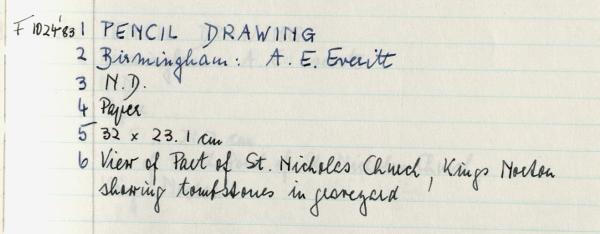 F 1024'83 1 PENCIL DRAWING
2 Birmingham: A. E. Everitt
3 N.D.
4 Paper
5 32 x 23.1 cm
6 View of Part of St. Nicholas Church, Kings Norton
showing tombstones in graveyard